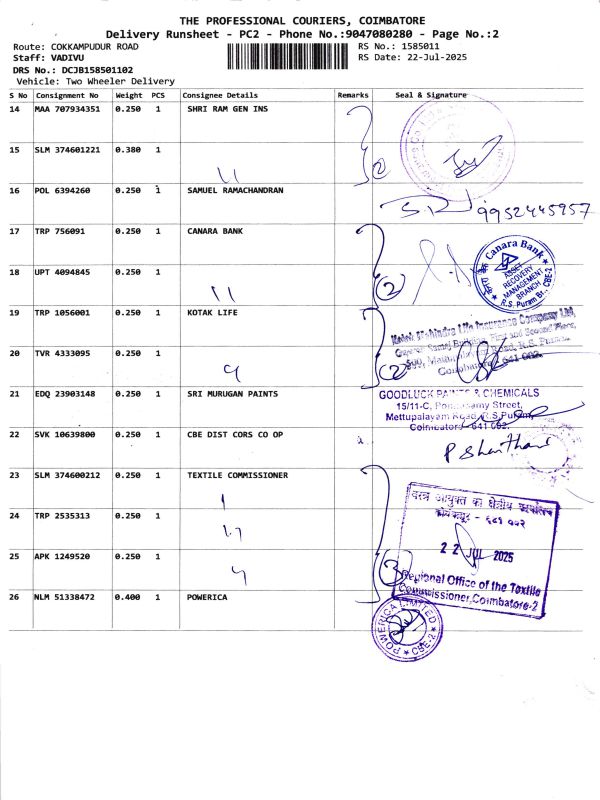 THE PROFESSIONAL COURIERS, COIMBATORE
Delivery Runsheet - PC2 - Phone No.:9047080280 - Page No.:2
Route: COKKAMPUDUR ROAD
Staff: VADIVU
DRS No.: DCJB158501102
Vehicle: Two Wheeler Delivery
RS No.: 1585011
RS Date: 22-Jul-2025
S No Consignment No Weight PCS Consignee Details Remarks Seal & Signature
14 MAA 707934351 0.250 1 SHRI RAM GEN INS
15 SLM 374601221 0.380 1 11 2
16 POL 6394260 0.250 1 SAMUEL RAMACHANDRAN
9952445957
17 TRP 756091 0.250 1 CANARA BANK
Canara Bank
ASSET
RECOVERY
MANAGEMENT
BRANCH
R.S. Puram Br., CBE-2
18 UPT 4094845 0.250 1 11 2
19 TRP 1056001 0.250 1 KOTAK LIFE
Kotak Mahindra Life Insurance Company Ltd
20 TVR 4333095 0.250 1 2
Coimbatore - 641 002.
21 EDQ 23903148 0.250 1 SRI MURUGAN PAINTS
GOODLUCK PAINTS & CHEMICALS
15/11-C, Ponnusamy Street,
Mettupalayam Road, R.S.Puram,
Coimbatore - 641 002.
22 SVK 10639800 0.250 1 CBE DIST CORS CO OP
23 SLM 374600212 0.250 1 TEXTILE COMMISSIONER
वस्त्र आयुक्त का क्षेत्रीय कार्यालय
कोयम्बत्तूर - ६४१ ००२
24 TRP 2535313 0.250 1
22 JUL 2025
25 APK 1249520 0.250 1 3
Regional Office of the Textile
Commissioner, Coimbatore-2
26 NLM 51338472 0.400 1 POWERICA
POWERICA LIMITED
CBE-2